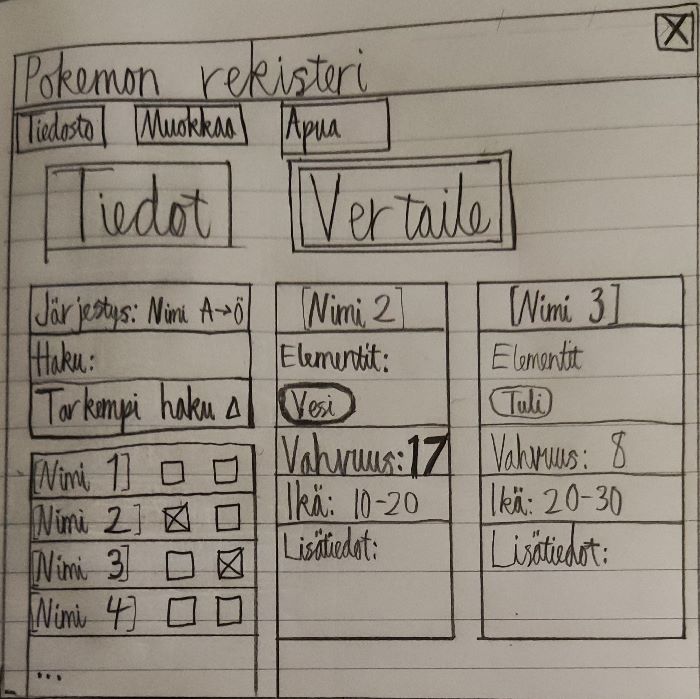 X
Pokemon rekisteri
Tiedosto Muokkaa Apua
Tiedot Vertaile
Järjestys: Nimi A→Ö
Haku:
Tarkempi haku Δ
[Nimi 1]
[Nimi 2]
[Nimi 3]
[Nimi 4]
...
[Nimi 2]
Elementit:
Vesi
Vahvuus: 17
Ikä: 10-20
Lisätiedot:
[Nimi 3]
Elementit
Tuli
Vahvuus: 8
Ikä: 20-30
Lisätiedot: